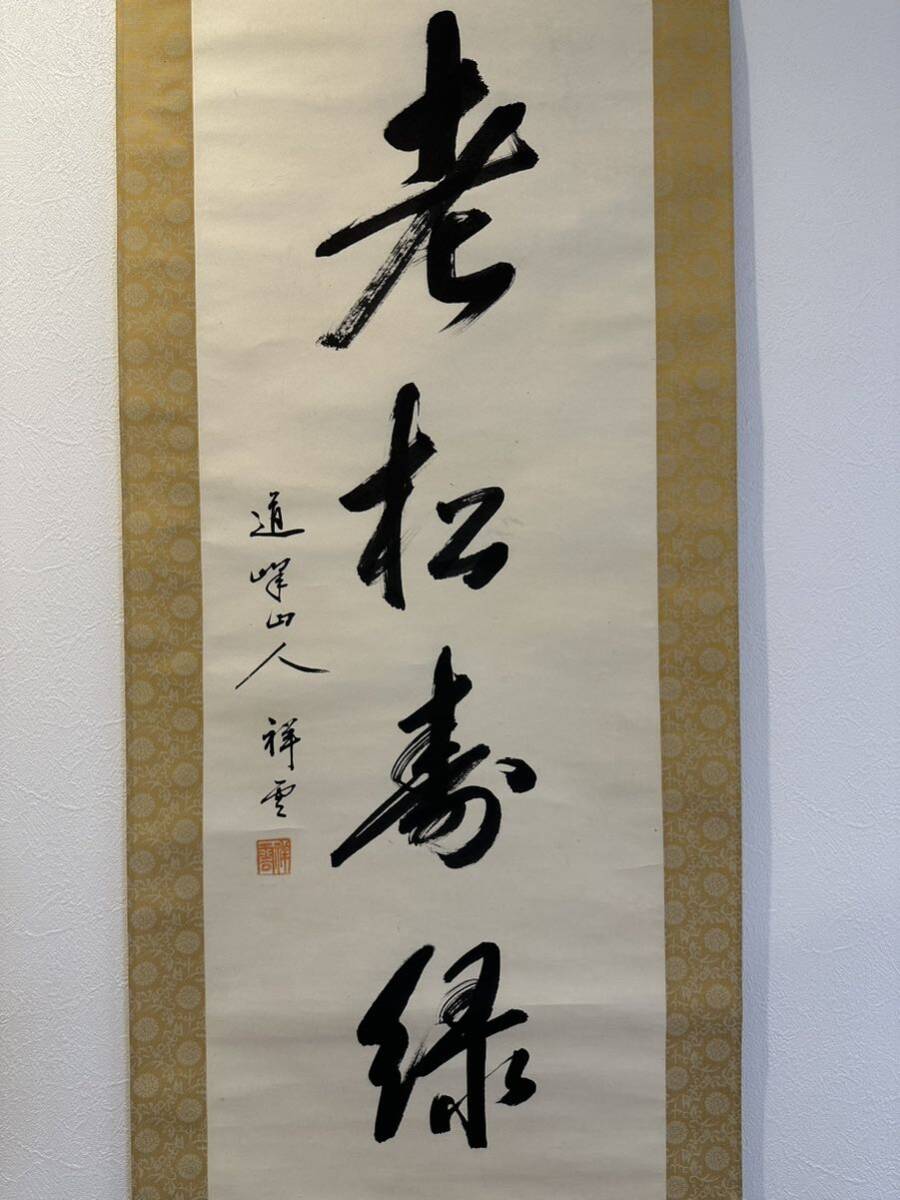 老松寿緑
道峰山人 祥雲